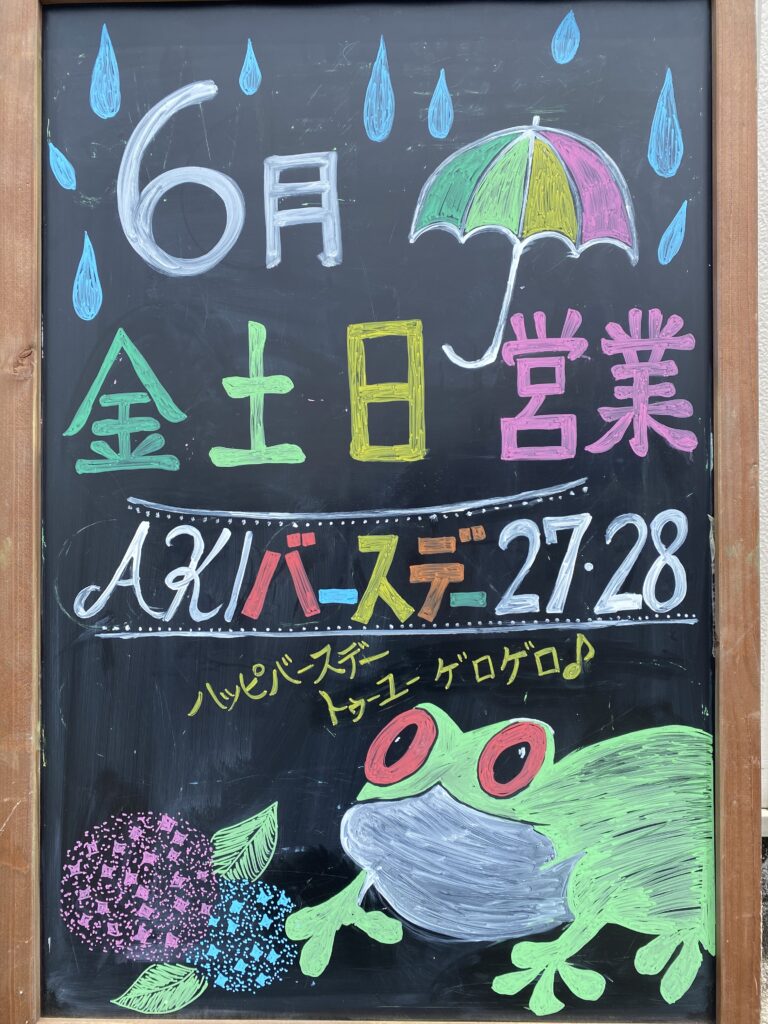 6月
金土日営業
AKIバースデー27・28
ハッピバースデー
トゥーユー ゲロゲロ♪